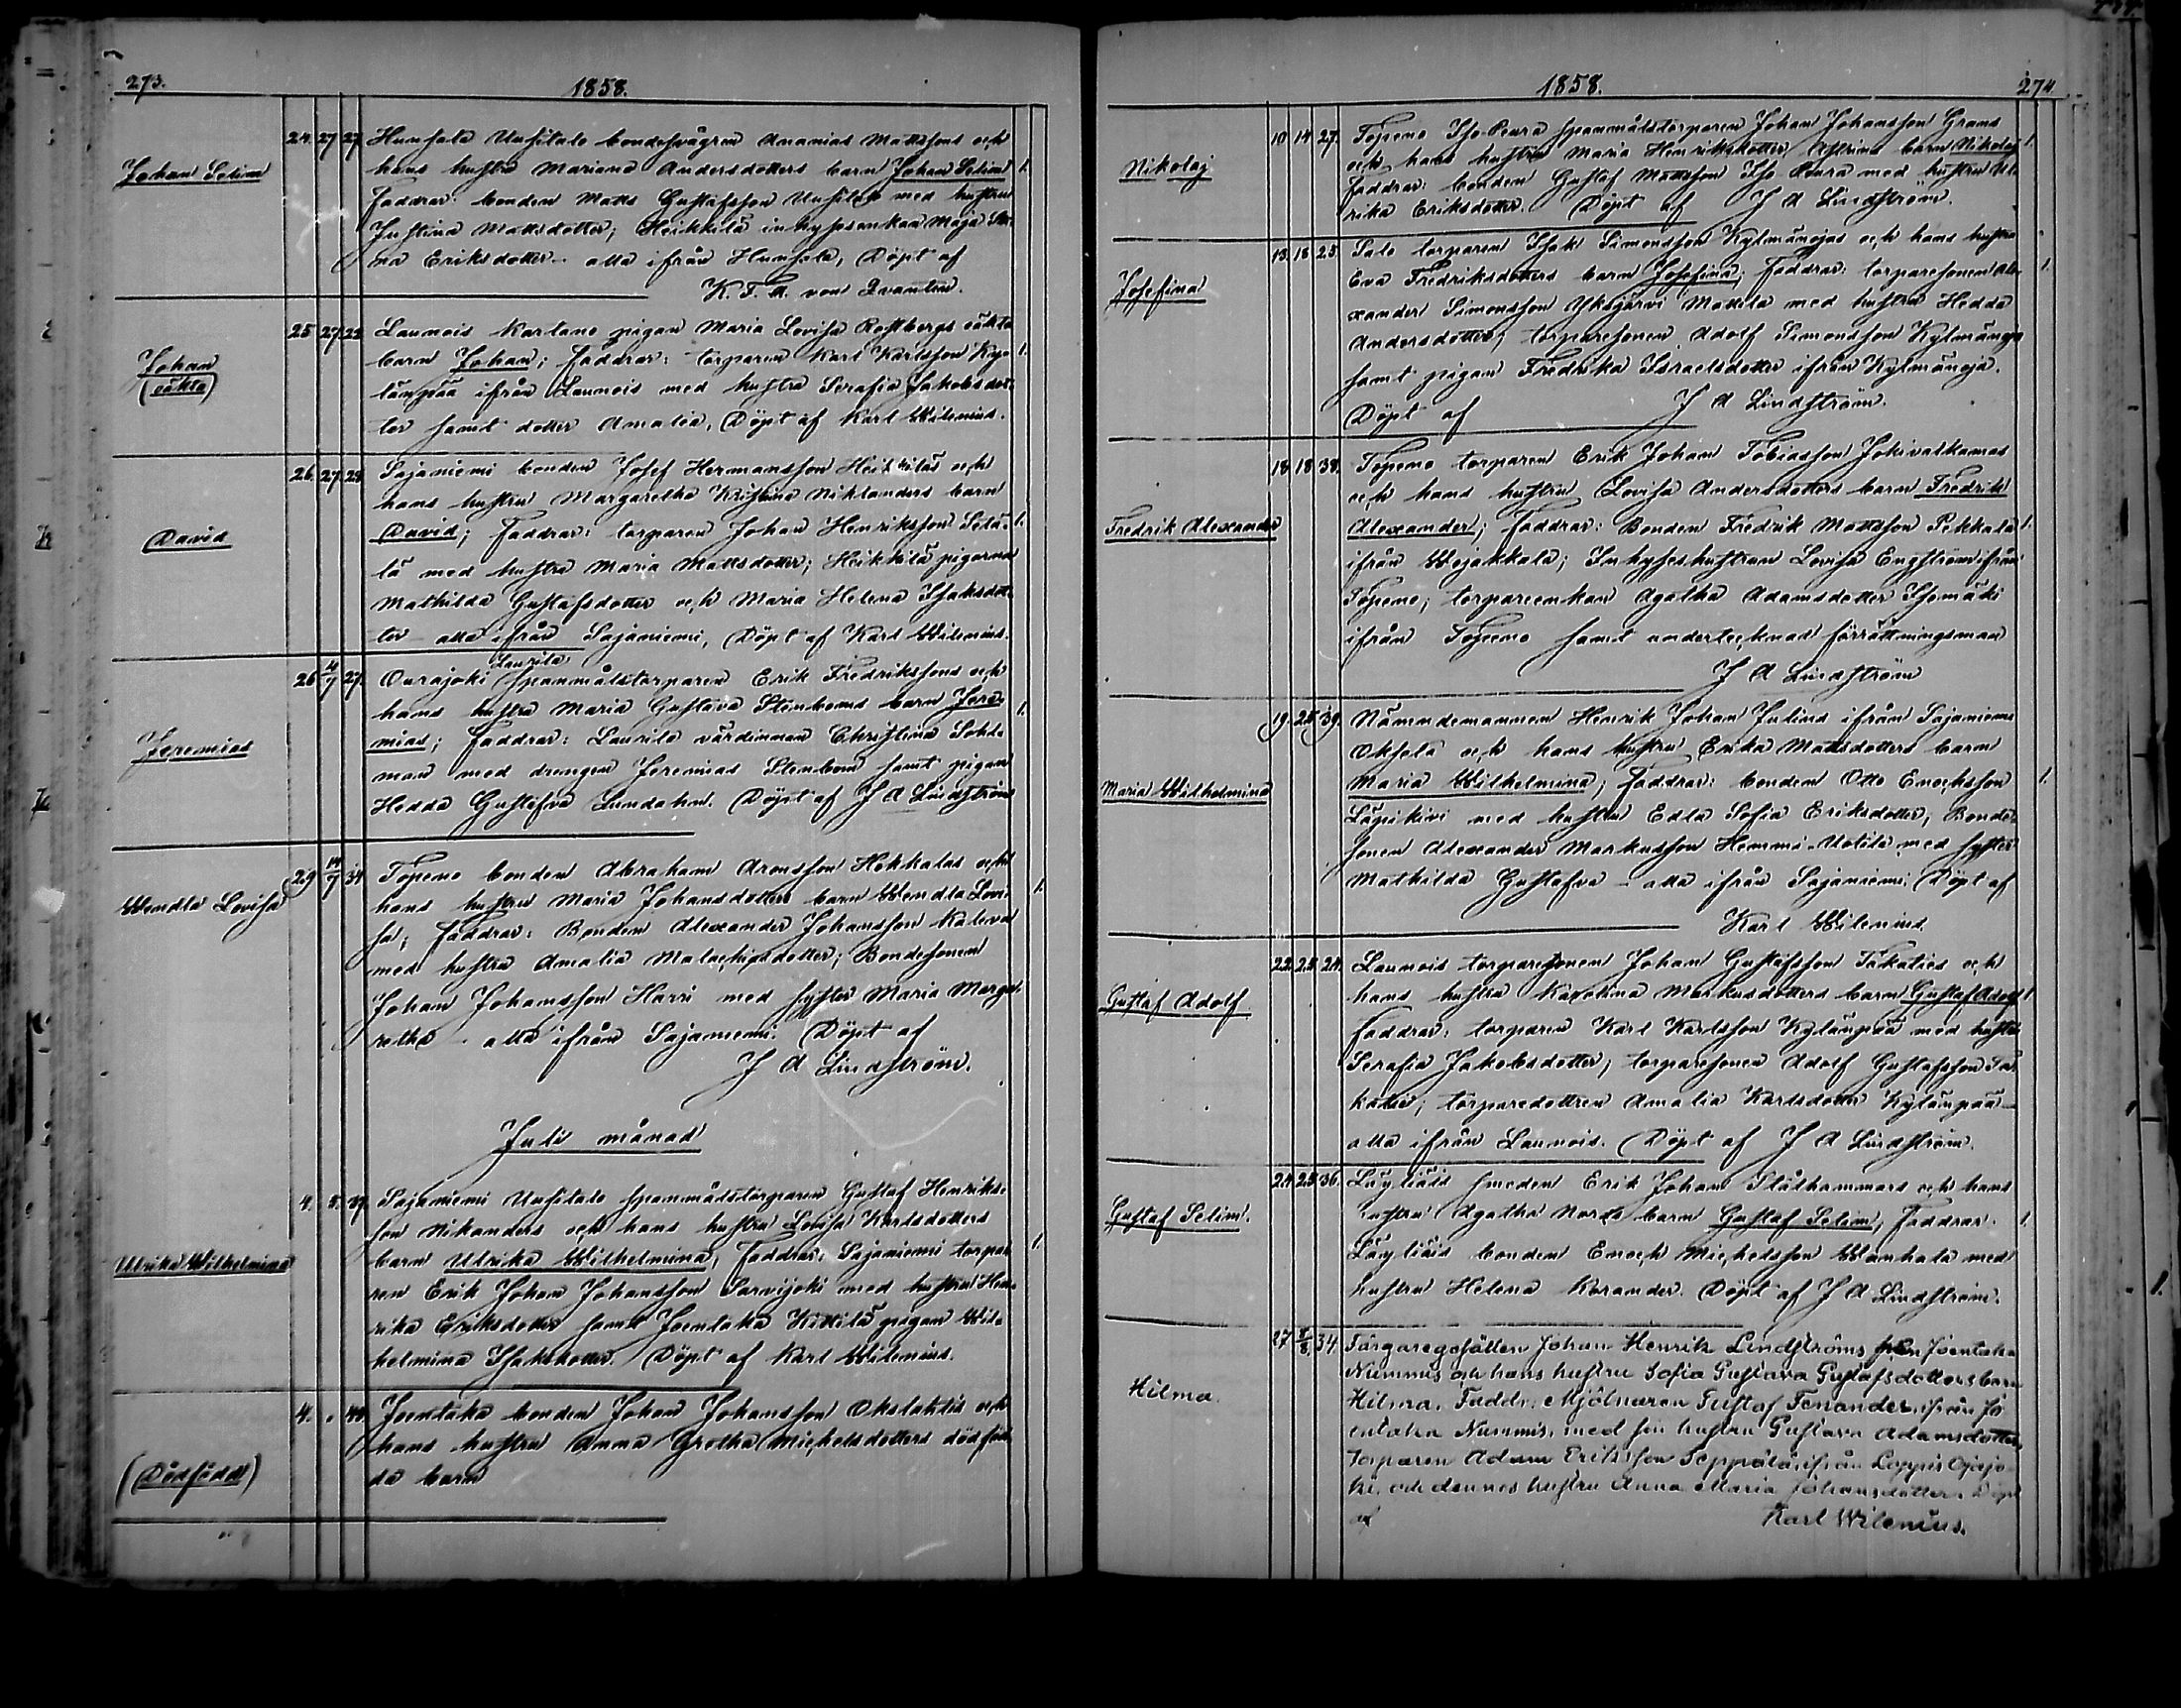 273.
1858.
Johan Selim
24. 27 27. Hunsala Uusitalo bondesvågren Ananias Mattssons och
hans hustru Mariana Andersdotters barn Johan Selim 1.
Faddrar: bonden Matts Gustafsson Uusitalo med hustru
Justina Mattsdotter; Heikkilä inhysesenkan Maja Sti-
na Eriksdotter - alla ifrån Hunsala, Döpt af
K. F. A. von Qvanten.
Johan
(oäkta)
25 27. 22 Launois Kartano pigan Maria Lovisa Rostbergs oäkta
barn Johan; faddrar: torparen Karl Karlsson Ky- 1.
länpää ifrån Launois med hustru Serafia Jakobsdot-
ter samt dotter Amalia, Döpt af Karl Wilenius.
David
26. 27. 29 Sajaniemi bonden Josef Hermansson Heikkiläs och
hans hustru Margaretha Kristina Niklanders barn
David; Faddrar: torparen Johan Henriksson Selä- 1.
lä med hustru Maria Mattsdotter; Heikkilä pigorna
Mathilda Gustafsdotter och Maria Helena Isaksdot-
ter - alla ifrån Sajaniemi, Döpt af Karl Wilenius.
Jeremias
26 4/7 27. Ourajoki Laurila spanmålstorparen Erik Fredrikssons och
hans hustru Maria Gustava Stenboms barn Jere- 1.
mias; faddrar: Laurila värdinnan Christina Sohl-
man med drengen Jeremias Stenbom samt pigan
Hedda Gustafva Lundahn. Döpt af J A Lindström
Wendla Lovisa
29 14/7 34 Topeno bonden Abraham Aronsson Hokkalas och
hans hustru Maria Johansdotters barn Wendla Lovi- 1.
sa; faddrar: Bonden Alexander Johansson Kaleva
med hustru Amalia Malachiasdotter; Bondesonen
Johan Johansson Harri med syster Maria Marga-
retha - alla ifrån Sajaniemi. Döpt af
J A Lindström.
Juli månad
Ulrika Wilhelmina
4. 8. 37. Sajaniemi Uusitalo spanmålstorparen Gustaf Henriks-
son Nikanders och hans hustru Lovisa Karlsdotters
barn Ulrika Wilhelmina, faddrar: Sajaniemi torpa- 1.
ren Erik Johan Johansson Sarvijoki med hustru Hen-
rika Eriksdotter samt Joentaka Kittilä pigan Wil-
helmina Isaksdotter. Döpt af Karl Wilenius.
(Dödfödd)
4. . 40 Joentaka bonden Johan Johansson Okslahtis och
hans hustru Anna Gretha Michelsdotters dödföd-
da barn
1858.
274
Nikolaj
10 14 27. Topeno Iso-Peura spanmålstorparen Johan Johansson Grans
och hans hustru Maria Henriksdotter barn Nikolaj 1.
faddrar: bonden Gustaf Mattsson Iso-Peura med hustru Ul-
rika Eriksdotter. Döpt af J A Lindström.
Josefina
13. 18 23. Salo torparen Isak Simonsson Kylmänojas och hans hustru
Eva Fredriksdotters barn Josefina; faddrar: torparesonen Ale- 1.
xander Simonsson Yksjärvi Mattila med hustru Hedda
Andersdotter; torparesonen Adolf Simonsson Kylmänoja
samt pigan Fredrika Israelsdotter ifrån Kylmänoja.
Döpt af J A Lindström.
Fredrik Alexander
18 18 38. Topeno torparen Erik Johan Tobiasson Jokivalkamas
och hans hustru Lovisa Andersdotters barn Fredrik
Alexander; faddrar: Bonden Fredrik Mattsson Pekkala 1.
ifrån Wojakkala; Inhyseshustrun Lovisa Engström ifrån
Topeno; torpareenkan Agatha Adamsdotter Isomäki
ifrån Topeno samt undertecknad förrättningsman
J A Lindström
Maria Wilhelmina
19. 25. 39. Nämndemannen Henrik Johan Julius ifrån Sajaniemi
Oksala och hans hustru Erika Mattsdotters barn
Maria Wilhelmina; faddrar: bonden Otto Enochsson 1.
Läpikivi med hustru Edla Sofia Eriksdotter, Bonde-
sonen Alexander Markusson Hemmi-Uotila med syster
Mathilda Gustafva - alla ifrån Sajaniemi. Döpt af
Karl Wilenius.
Gustaf Adolf
22. 25. 24. Launois torparesonen Johan Gustafsson Takaties och
hans hustru Karolina Markusdotters barn Gustaf Adolf 1.
faddrar: torparen Karl Karlsson Kylänpää med hustru
Serafia Jakobsdotter, torparesonen Adolf Gustafsson Ta-
katie; torparedottren Amalia Karlsdotter Kylänpää -
alla ifrån Launois. Döpt af J A Lindström.
Gustaf Selim.
24. 25. 36. Läyliäis smeden Erik Johan Stålhammars och hans
hustru Agatha Nords barn Gustaf Selim; faddrar. 1.
Läyliäis bonden Enoch Michelsson Wanhala med
hustru Helena Korander. Döpt af J A Lindström.
Hilma.
27 8/8. 34. Färgaregesällen Johan Henrik Lindströms från Joentaka
Nummis och hans hustru Sofia Gustava Gustafsdotters barn
Hilma. Faddr. Mjölnaren Gustaf Fonander, ifrån Jo-
entaka Nummis, med sin hustru Gustava Adamsdotter,
torparen Adam Eriksson Seppälä, ifrån Loppis Ojajo-
ki, och dennes hustru Anna Maria Johansdotter. Döpt
af Karl Wilenius.